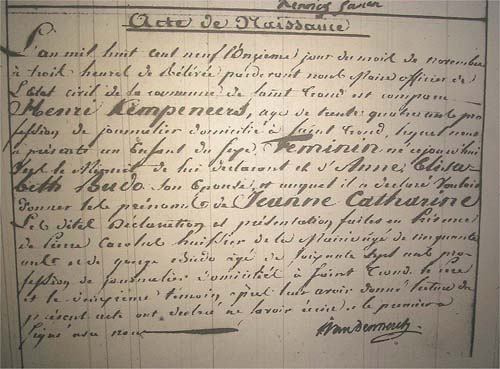 Acte de Naissance
L'an mil huit cent neuf l'onzieme jour du mois de novembre
à trois heures de Rélévée pardevant nous Maire officier de
L'Etat civil de la commune de Saint Trond est comparu
Henri Kempeneers, age de trente quatre ans pro
fession de journalier domicilié à Saint Trond, lequel nous
a présenté un Enfant du sexe Feminin né ajourd'hui
de lui déclarant et d'Anne Elisa
beth Budo son Epouse, et auquel il a déclaré vouloir
donner les prénoms de Jeanne Catharine
Les dites Déclaration et présentation faites en présence
de Pierre Carolus huissier de la Mairie âgé de cinquante
ans et de george Budo âgé de soixante sept ans pro
fession de journalier domiciliés à Saint Trond. le pere
et le deuxieme temoin, après leur avoir donné lecture du
présent acte ont déclaré ne savoir écrire et le premier a
signé avec nous